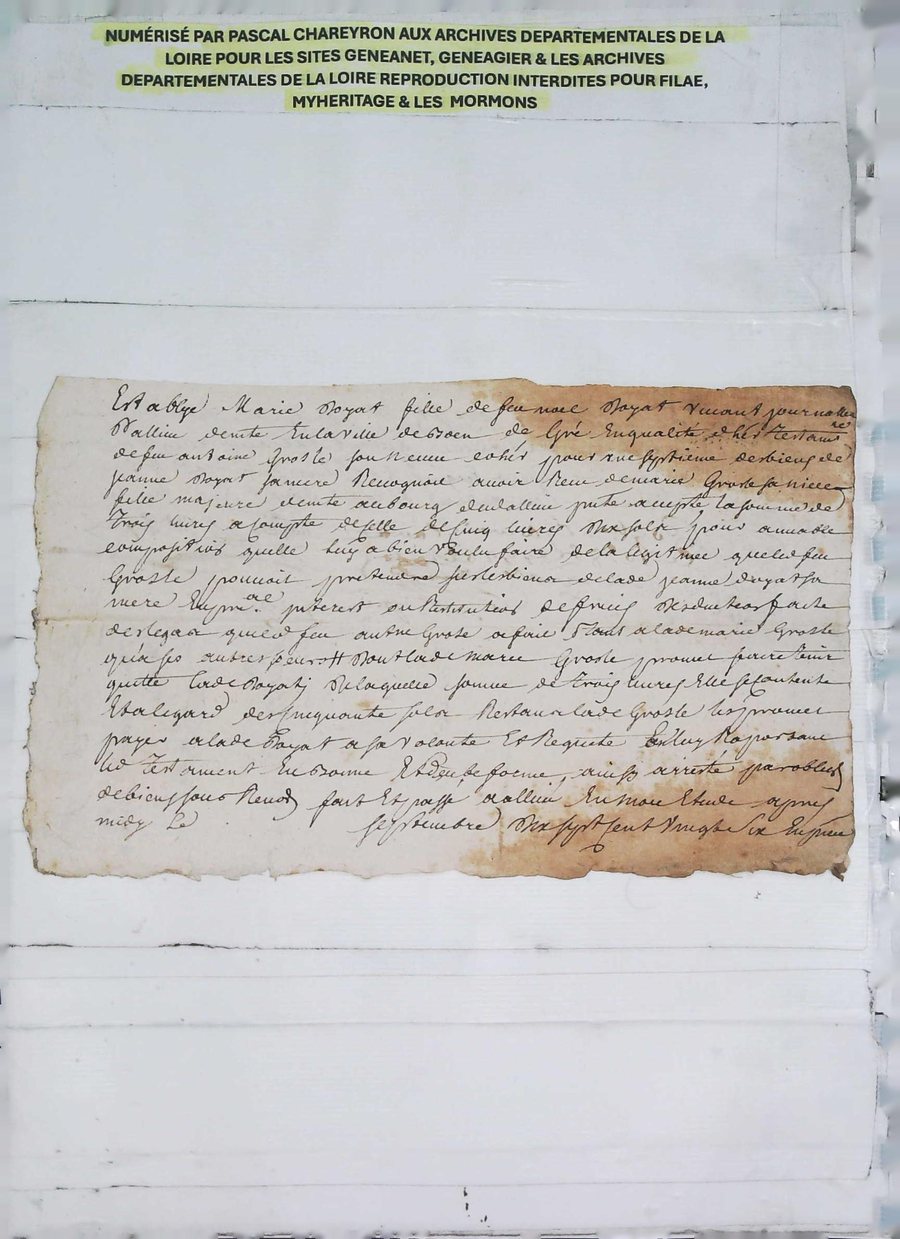 NUMÉRISÉ PAR PASCAL CHAREYRON AUX ARCHIVES DEPARTEMENTALES DE LA
LOIRE POUR LES SITES GENEANET, GENEAGIER & LES ARCHIVES
DEPARTEMENTALES DE LA LOIRE REPRODUCTION INTERDITES POUR FILAE,
MYHERITAGE & LES MORMONS
Establye Marie Boyat fille de feu noel Boyat vivant journalier
Dallieu demte En la ville de Boen de Gré En qualité
de feu antoine Groste son neveu pour une septieme des biens de
jeanne Boyat sa mere Recognoit avoir Receu de marie Groste sa niece
fille majeure demte au bourg dudallieu la somme de
Trois livres a Compte de Celle de Cinq livres dix sols pour amiable
composition quelle luy a bien voulu faire de la legitime que led feu
Groste pouvoit pretendre sur les biens de lade jeanne Boyat sa
mere En interest ou Restitution de fruits deduction faite
des legats que led feu Groste a fait Tant a lade marie Groste
qu'a ses autres soeurs Dont lade Marie Groste promet faire tenir
quitte lade Boyat De laquelle somme de trois livres Elle se Contente
Et a legard des Cinquante sols Restant lade Groste les promet
payer a lade Boyat a sa volonte Et Requete En luy Raportant
led Testament En bonne Et deube forme, ainsy arresté par oblig
de biens sous Renon fait Et passé a allieu En mon Etude apres
midy Le septembre Dix sept cent vingt six En